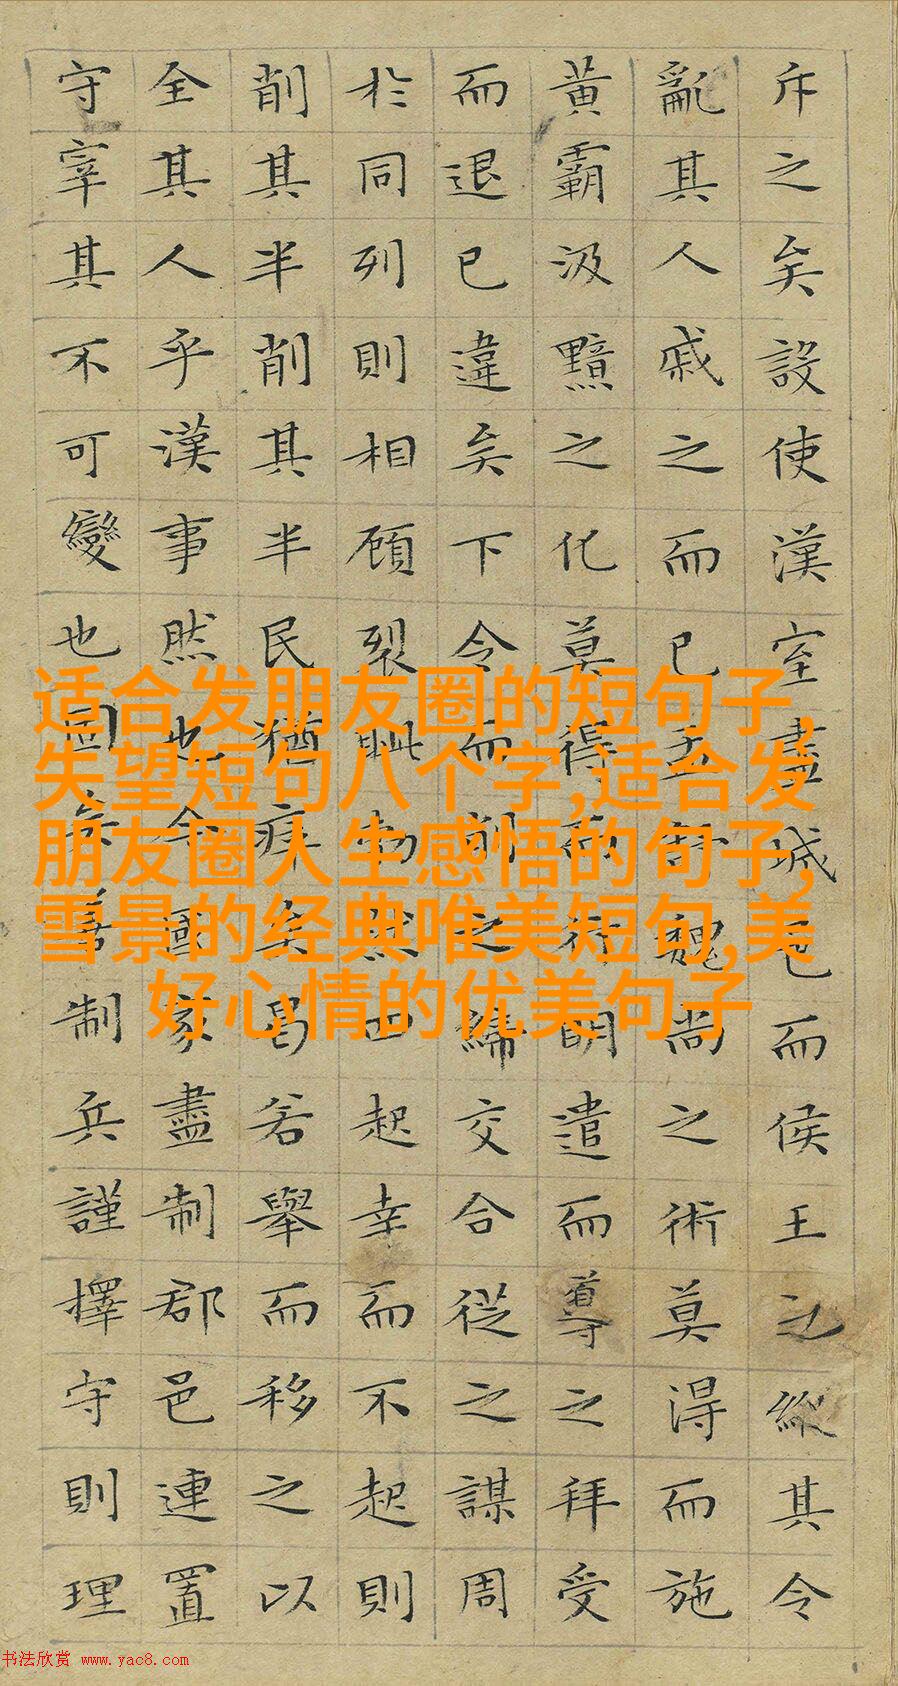 斥之矣設使漢室盡城邑而侯王之縱其令
亂其人戚之而已孟舒魏尚之術莫得而施
黃霸汲黯之化莫得行明遣而導之拜受
而退已違矣下令而削之締交合從之謀周
於同列則相顧裂眦勃然起幸而不起則
削其半削其半民猶瘁矣曷若舉而移之以
全其人乎漢事然也今國家盡制郡邑連置
守宰其不可變也固矣善制兵謹擇守則理
适合发朋友圈的短句子,
失望短句八个字,适合发
朋友圈人生感悟的句子,
雪景的经典唯美短句,美
好心情的优美句子
书法欣赏 www.yac8.com